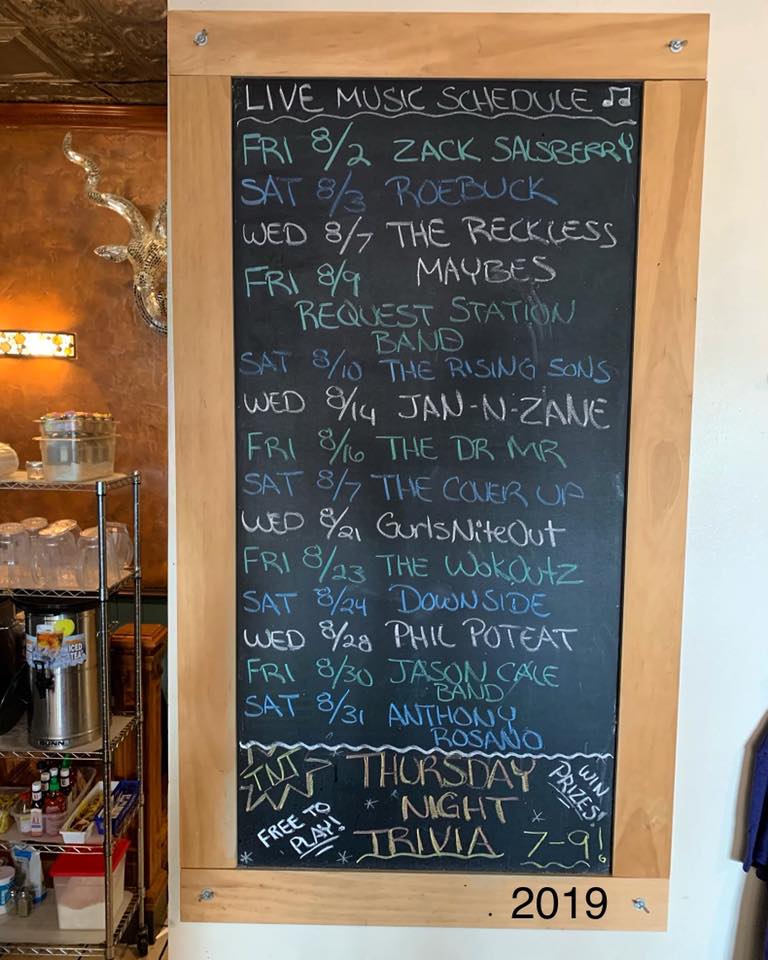 LIVE MUSIC SCHEDULE
FRI 8/2 ZACK SALSBERRY
SAT 8/3 ROEBUCK
WED 8/7 THE RECKLESS
MAYBES
FRI 8/9
REQUEST STATION
BAND
SAT 8/10 THE RISING SONS
WED 8/14 JAN-N-ZANE
FRI 8/16 THE DR MR
SAT 8/7 THE COVER UP
WED 8/21 GurlsNiteOut
FRI 8/23 THE WokOutz
SAT 8/24 DOWNSIDE
WED 8/28 PHIL POTEAT
FRI 8/30 JASON CALE
BAND
SAT 8/31 ANTHONY
ROSANO
TNT
THURSDAY
NIGHT
TRIVIA 7-9!
WIN
PRIZES!
FREE TO
PLAY!
. 2019
ICED
TEA
BUNN